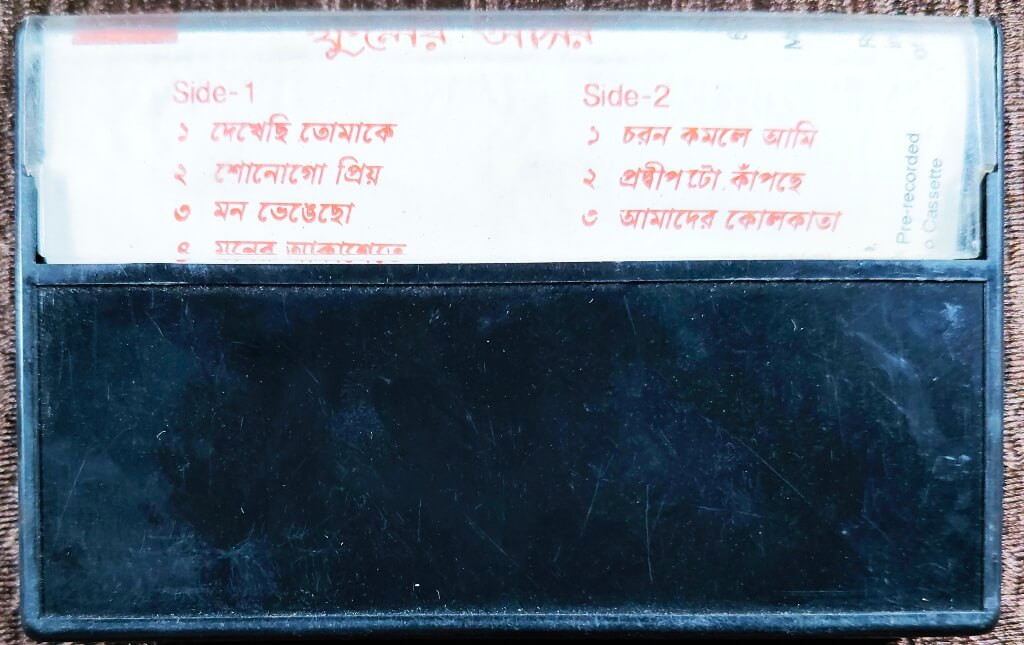 ফুলের আসর
Side-1
১ দেখেছি তোমাকে
২ শোনোগো প্রিয়
৩ মন ভেঙেছো
৪ মনের আকাশেতে
Side-2
১ চরন কমলে আমি
২ প্রদ্বীপটো কাঁপছে
৩ আমাদের কোলকাতা
Pre-recorded
o Cassette